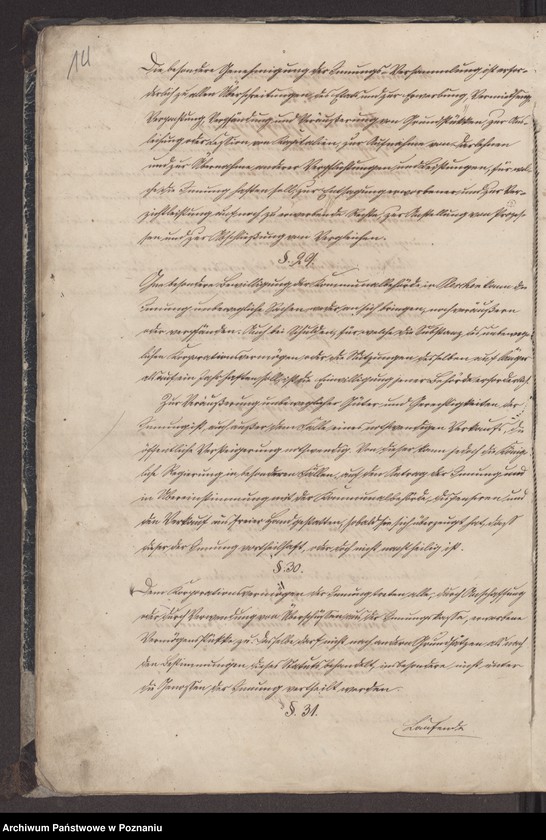 14
Die besondere Genehmigung der Innungs-Versammlung ist erfor-
derlich zu allen Überschreitungen des Etats und zur Erwerbung, Vermiethung,
Verpachtung, Verpfändung und Veräußerung von Grundstücken, zur Aus-
leihung oder Cession von Kapitalien, zur Aufnahme von Darlehnen
und zur Übernahme anderer Verpflichtungen und Leistungen, für wel-
che die Innung haften soll, zur Entsagung erworbener und zur Ver-
zichtleistung auf noch zu erwerbende Rechte, zur Anstellung von Prozes-
sen und zur Abschließung von Vergleichen.
§. 29.
Ohne besondere Bewilligung der Kommunalbehörde in kann die
Innung unbewegliche Sachen weder an sich bringen, noch veräußern
oder verpfänden. Auch bei Schulden, für welche die Substanz des unbeweg-
lichen Korporationsvermögens oder die Nutzungen desselben auf länger
als auf ein Jahr haften soll, ist die Einwilligung jener Behörde erforderlich.
Zur Veräußerung unbeweglicher Güter und Gerechtigkeiten der
Innung ist, außer dem Falle eines nothwendigen Verkaufs, die
öffentliche Versteigerung nothwendig. Von dieser kann jedoch die König-
liche Regierung in besonderen Fällen, auf den Antrag der Innung und
in Übereinstimmung mit der Kommunalbehörde, dispensiren und
den Verkauf aus freier Hand gestatten, sobald sie sich überzeugt hat, daß
dieser der Innung vortheilhaft, oder doch nicht nachtheilig ist.
§. 30.
Dem Korporationsvermögen der Innung treten alle, durch Anschaffung
oder durch Verwendung von Überschüssen aus der Innungskasse, erworbene
Vermögensstücke zu. Dasselbe darf nicht nach andern Grundsätzen als nach
den Bestimmungen dieses Statuts behandelt, insbesondere nicht unter
die Genossen der Innung vertheilt werden.
§. 31.
Laufende
Archiwum Państwowe w Poznaniu